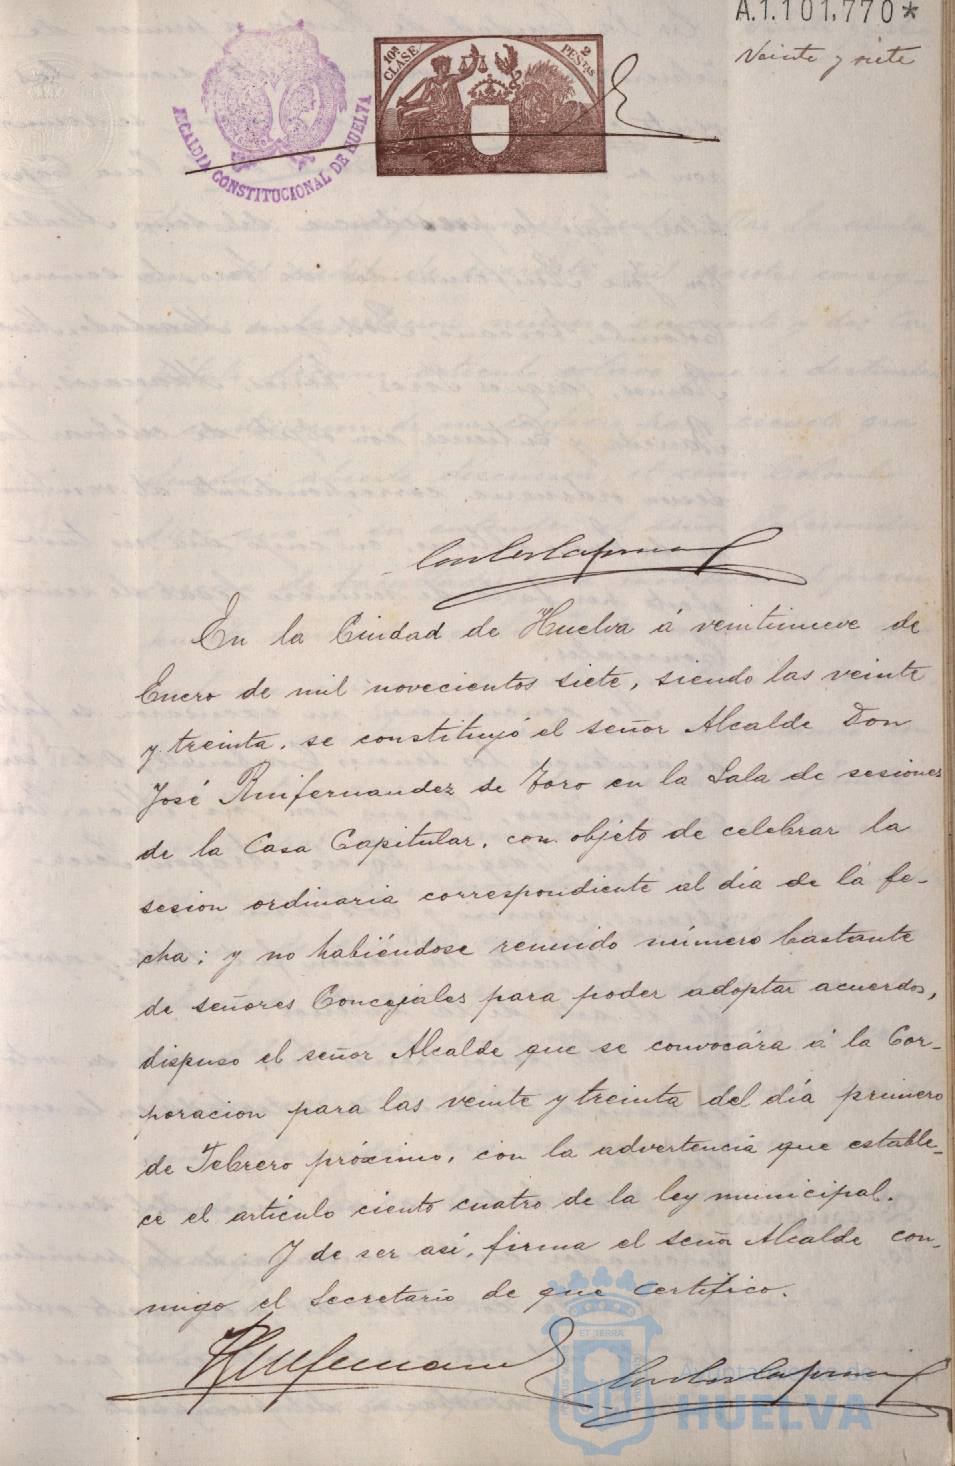 A.1.101.770*
Veinte y siete
10ª CLASE
2 PESTAS
ALCALDIA CONSTITUCIONAL DE HUELVA
En la Ciudad de Huelva á veintinueve de
Enero de mil novecientos siete, siendo las veinte
y treinta, se constituyó el señor Alcalde Don
José Ruifernandez de Toro en la Sala de sesiones
de la Casa Capitular, con objeto de celebrar la
sesion ordinaria correspondiente al dia de la fe-
cha; y no habiéndose reunido número bastante
de señores Concejales para poder adoptar acuerdos,
dispuso el señor Alcalde que se convocára á la Cor-
poracion para las veinte y treinta del día primero
de Febrero próximo, con la advertencia que estable-
ce el artículo ciento cuatro de la ley municipal.
Y de ser así, firma el señor Alcalde con-
migo el Secretario de que certifico.
Ayuntamiento de
HUELVA